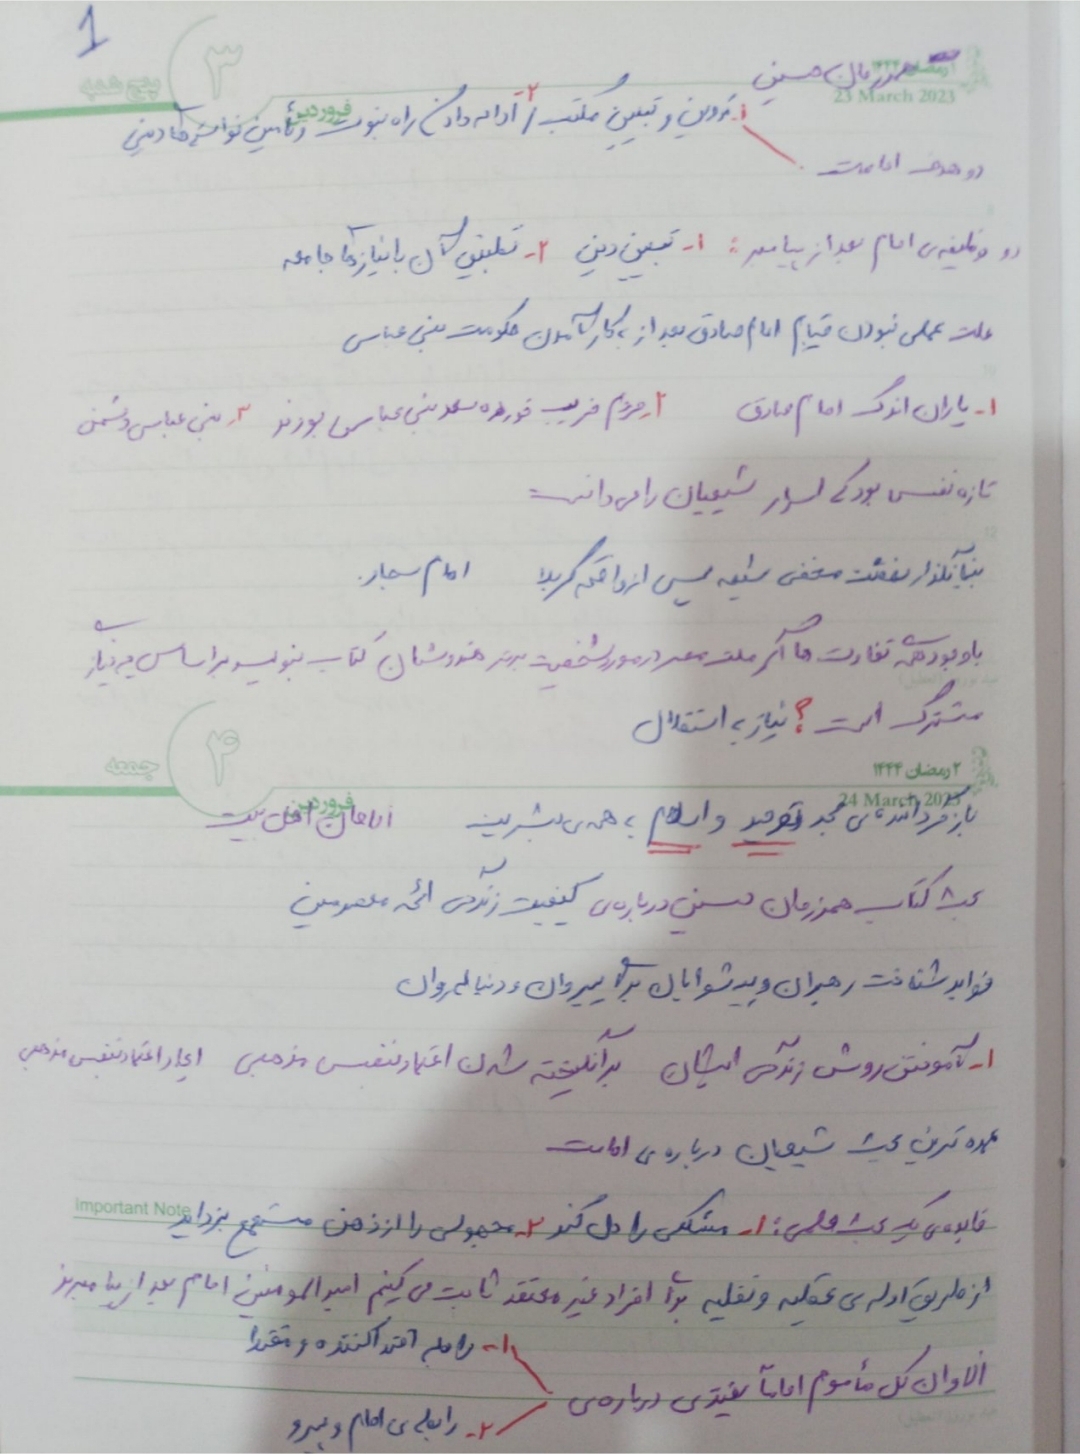 1
پنج شنبه
۳
فروردین
۱ رمضان ۱۴۴۴
23 March 2023
همرزمان حسین
۱. تدوین و تبیین مکتب ۲- ادامه دادن راه نبوت و تأمین خواسته‌های دینی
دو هدف امامت
دو وظیفه‌ی امام بعد از پیامبر: ۱- تبیین دین ۲- تطبیق آن با نیازهای جامعه
علت عملی نبودن قیام امام صادق بعد از به کار آمدن حکومت بنی عباسی
۱- یاران اندک امام صادق ۲. مردم فریب خورده بنی عباس بودند ۳. بنی عباس دشمن
تازه نفس بود که اسرار شیعیان را می دانست
بنیانگذار نهضت مخفی شیعه پس از واقعه کربلا امام سجاد.
با وجود همه تفاوت ها اگر ملت مصر در مورد شخصیت برتر هندوستان کتاب بنویسد بر اساس چه نیاز
مشترک است؟ نیاز به استقلال
جمعه
۴
فروردین
۲ رمضان ۱۴۴۴
24 March 2023
بازگرداننده‌ی مجد توحید و اسلام به همه‌ی بشریت امامان اهل بیت
بحث کتاب همرزمان حسین درباره‌ی کیفیت زندگی ائمه معصومین
فواید شناخت رهبران و پیشوایان برای پیروان و دنباله‌روان
۱- آموختن روش زندگی ایشان برانگیخته شدن اعتماد بنفس مذهبی ایجاد اعتماد بنفس مذهبی
عمده ترین بحث شیعیان درباره‌ی امامت
Important Note
فایده‌ی یک بحث علمی: ۱- مشکلی را حل کند ۲- مجهولی را از ذهن مستمع بزداید
از طریق ادله‌ی عقلیه و نقلیه برای افراد غیر معتقد ثابت می کنیم امیرالمومنین امام بعد از پیامبرند
۱- رابطه اقتدا کننده و مقتدا
الا و ان لکل مأموم اماما یقتدی درباره‌ی
۲- رابطه‌ی امام و پیرو